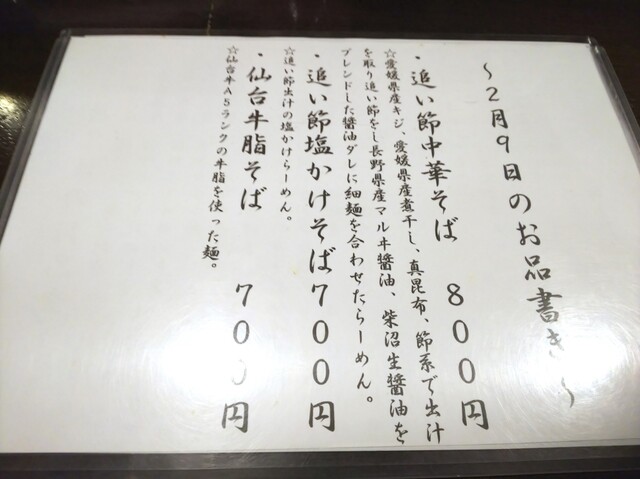 ～２月９日のお品書き～
・追い節中華そば　８００円
☆愛媛県産キジ、愛媛県産煮干し、真昆布、節系で出汁
を取り追い節をし長野県産マルヰ醤油、柴沼生醤油を
ブレンドした醤油ダレに細麺を合わせたらーめん。
・追い節塩かけそば７００円
☆追い節出汁の塩かけらーめん。
・仙台牛脂そば　７００円
☆仙台牛Ａ５ランクの牛脂を使った麺。